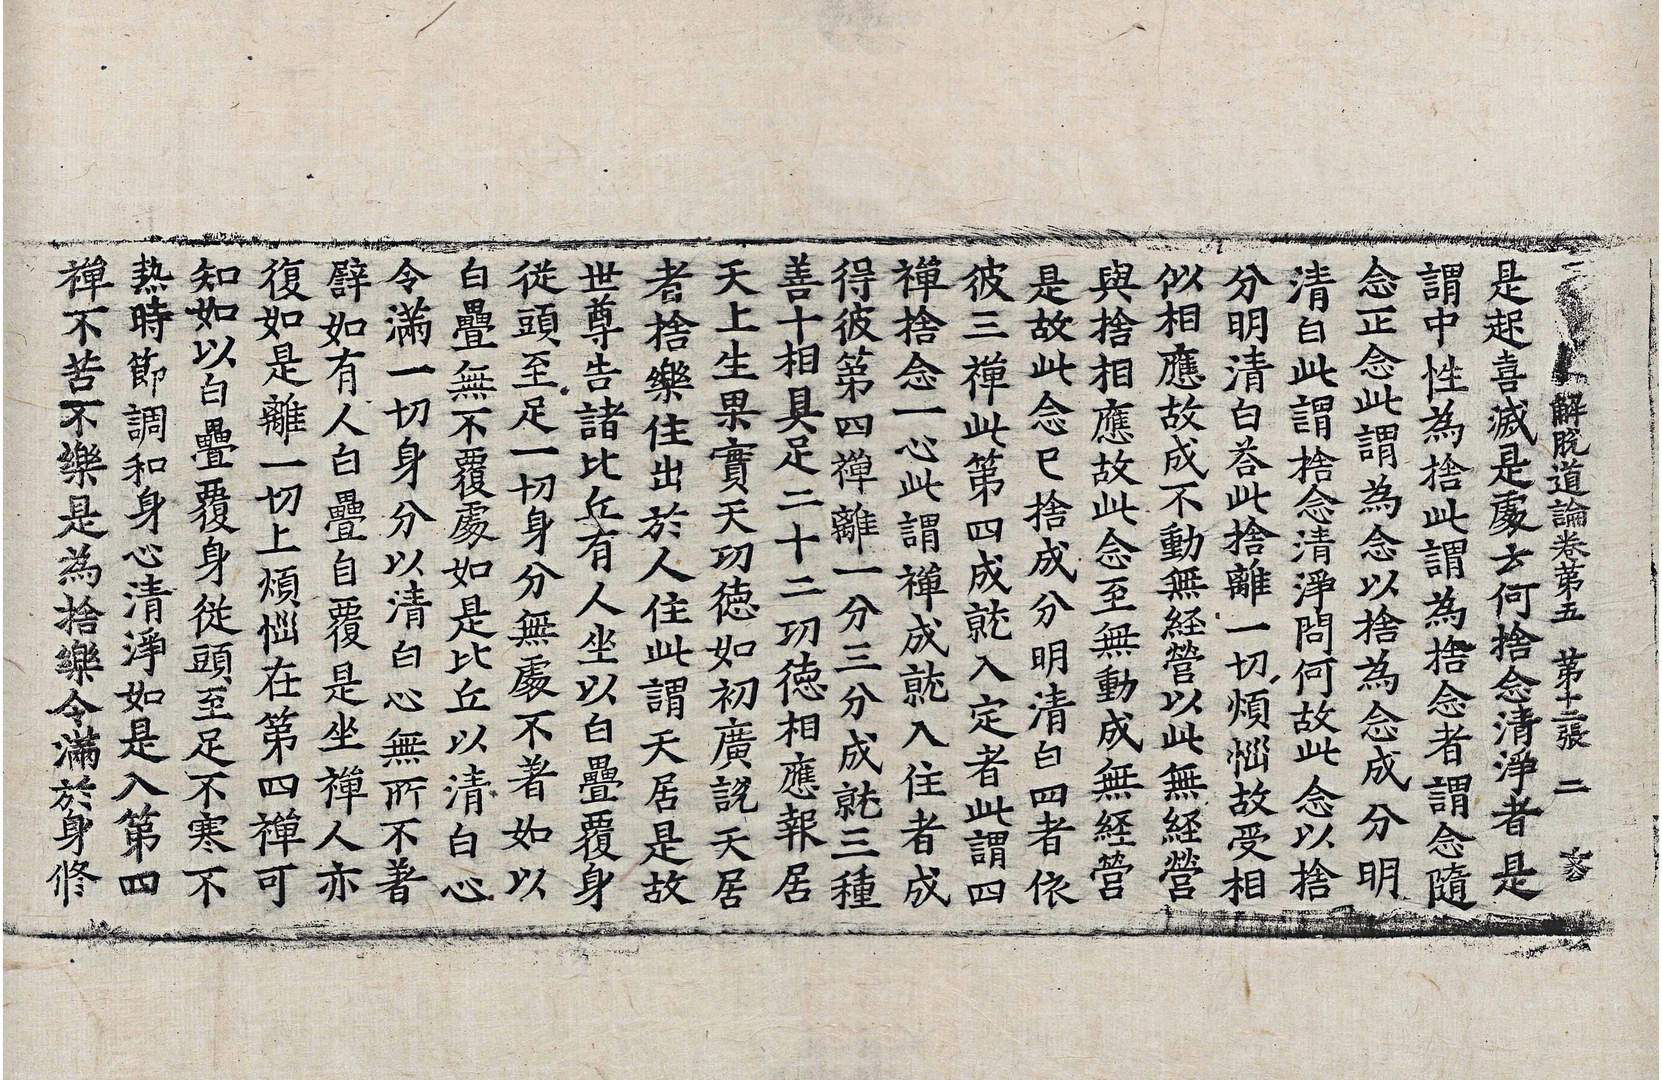 解脫道論卷第五　第十二張　二　密
是起喜滅是處云何捨念清淨者是
謂中性為捨此謂為捨念者謂念隨
念正念此謂為念以捨為念成分明
清白此謂捨念清淨問何故此念以捨
分明清白荅此捨離一切煩惱故受相
似相應故成不動無経營以此無経營
與捨相應故此念至無動成無経營
是故此念已捨成分明清白四者依
彼三禪此第四成就入定者此謂四
禪捨念一心此謂禪成就入住者成
得彼第四禪離一分三分成就三種
善十相具足二十二功徳相應報居
天上生果實天功徳如初廣說天居
者捨樂住出於人住此謂天居是故
世尊告諸比丘有人坐以白疊覆身
從頭至足一切身分無處不著如以
白疊無不覆處如是比丘以清白心
令滿一切身分以清白心無所不著
譬如有人白疊自覆是坐禪人亦
復如是離一切上煩惱在第四禪可
知如以白疊覆身從頭至足不寒不
熱時節調和身心清淨如是入第四
禪不苦不樂是為捨樂令滿於身修